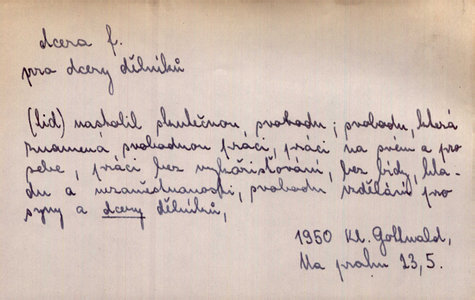 dcera f.
pro dcery dělníků
(Lid) nastolil skutečnou svobodu; svobodu, která
znamená svobodnou práci, práci na svém a pro
sebe, práci bez vykořisťování, bez bídy, hla-
du a nezaměstnanosti, svobodu vzdělání pro
syny a dcery dělníků,
1950 Kl. Gottwald,
Na prahu 23,5.